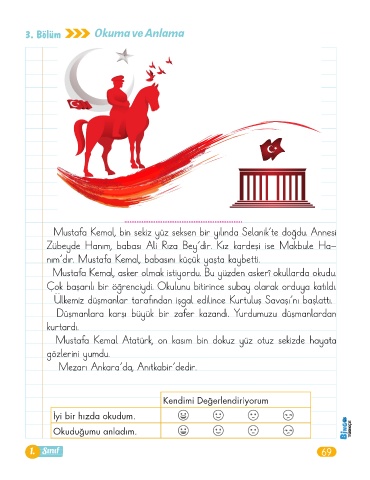 3. Bölüm
Okuma ve Anlama
Mustafa Kemal, bin sekiz yüz seksen bir yılında Selanik'te doğdu. Annesi
Zübeyde Hanım, babası Ali Rıza Bey'dir. Kız kardeşi ise Makbule Ha-
nım'dır. Mustafa Kemal, babasını küçük yaşta kaybetti.
Mustafa Kemal, asker olmak istiyordu. Bu yüzden askerî okullarda okudu.
Çok başarılı bir öğrenciydi. Okulunu bitirince subay olarak orduya katıldı.
Ülkemiz düşmanlar tarafından işgal edilince Kurtuluş Savaşı'nı başlattı.
Düşmanlara karşı büyük bir zafer kazandı. Yurdumuzu düşmanlardan
kurtardı.
Mustafa Kemal Atatürk, on kasım bin dokuz yüz otuz sekizde hayata
gözlerini yumdu.
Mezarı Ankara'da, Anıtkabir'dedir.
Kendimi Değerlendiriyorum
İyi bir hızda okudum.
Okuduğumu anladım.
1. Sınıf
69